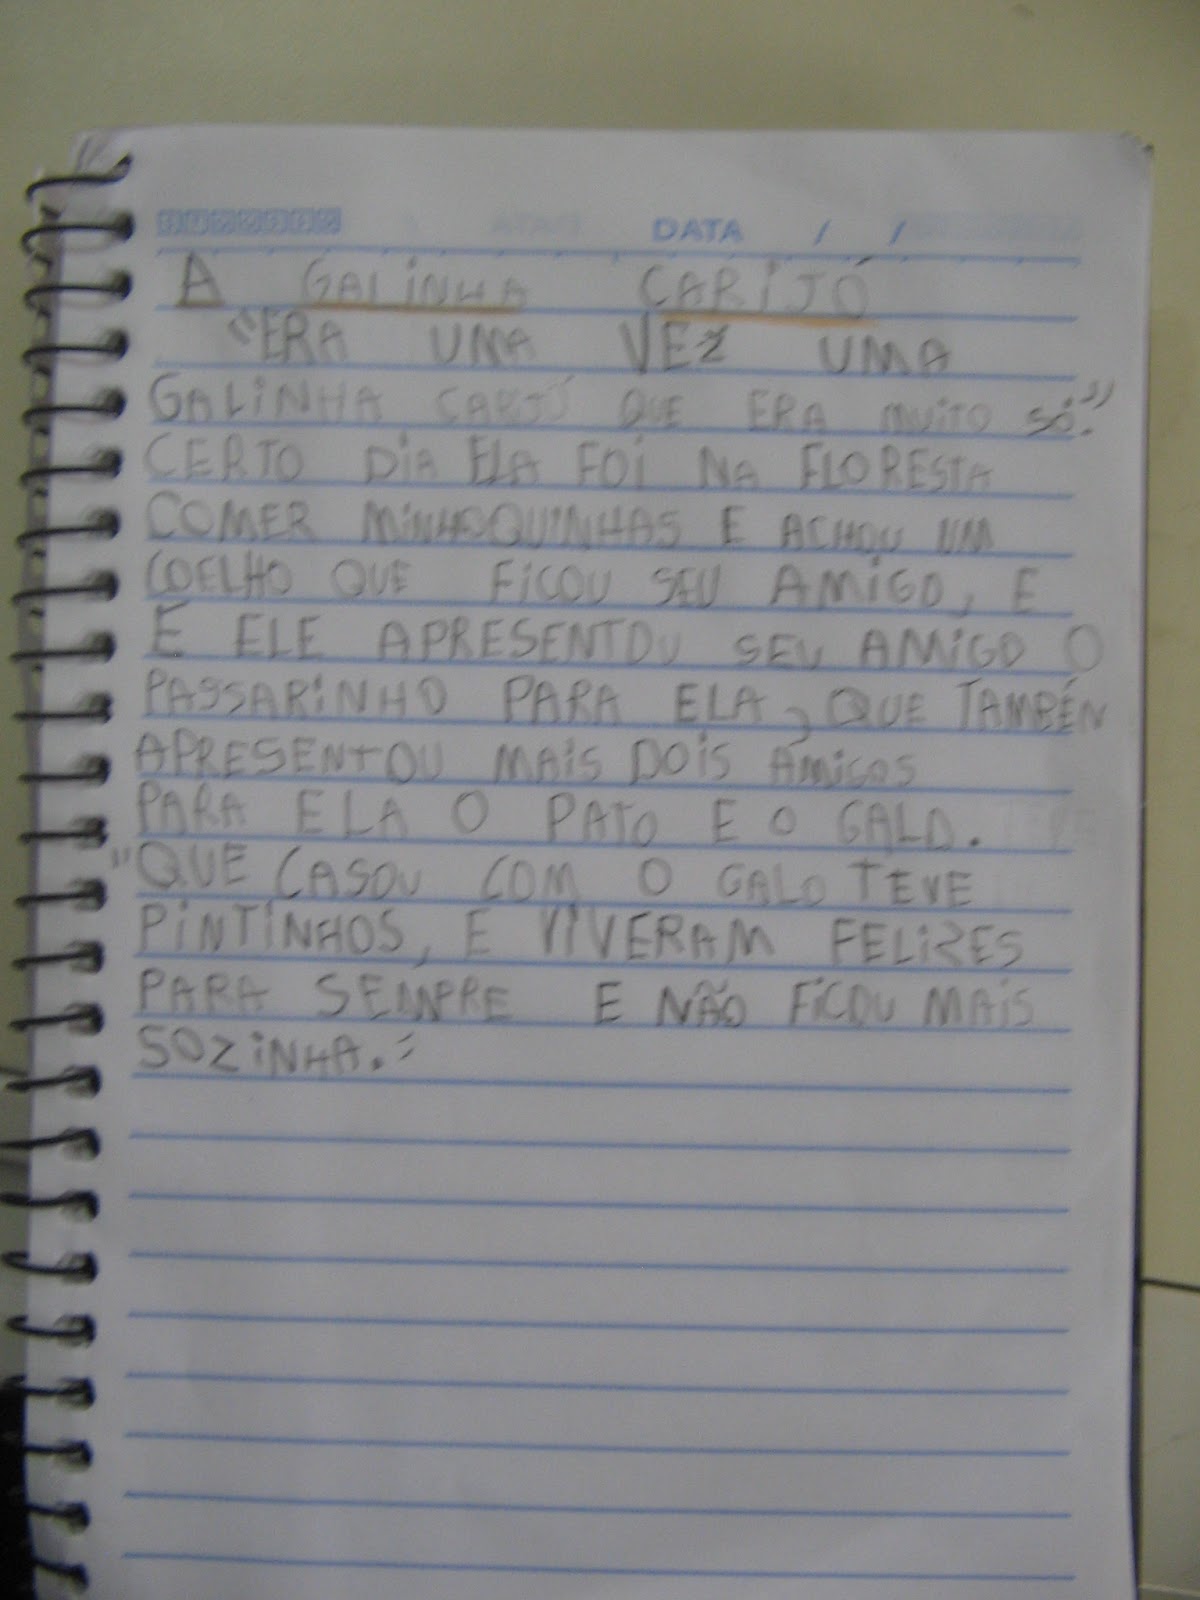 DATA / /
A GALINHA CARIJÓ
"ERA UMA VEZ UMA
GALINHA CARJÓ QUE ERA MUITO SÓ."
CERTO DIA ELA FOI NA FLORESTA
COMER MINHOQUINHAS E ACHOU UM
COELHO QUE FICOU SEU AMIGO, E
E ELE APRESENTOU SEU AMIGO O
PASSARINHO PARA ELA, QUE TAMBÉN
APRESENTOU MAIS DOIS AMIGOS
PARA ELA O PATO E O GALO.
"QUE CASOU COM O GALO TEVE
PINTINHOS, E VIVERAM FELIZES
PARA SEMPRE E NÃO FICOU MAIS
SOZINHA."